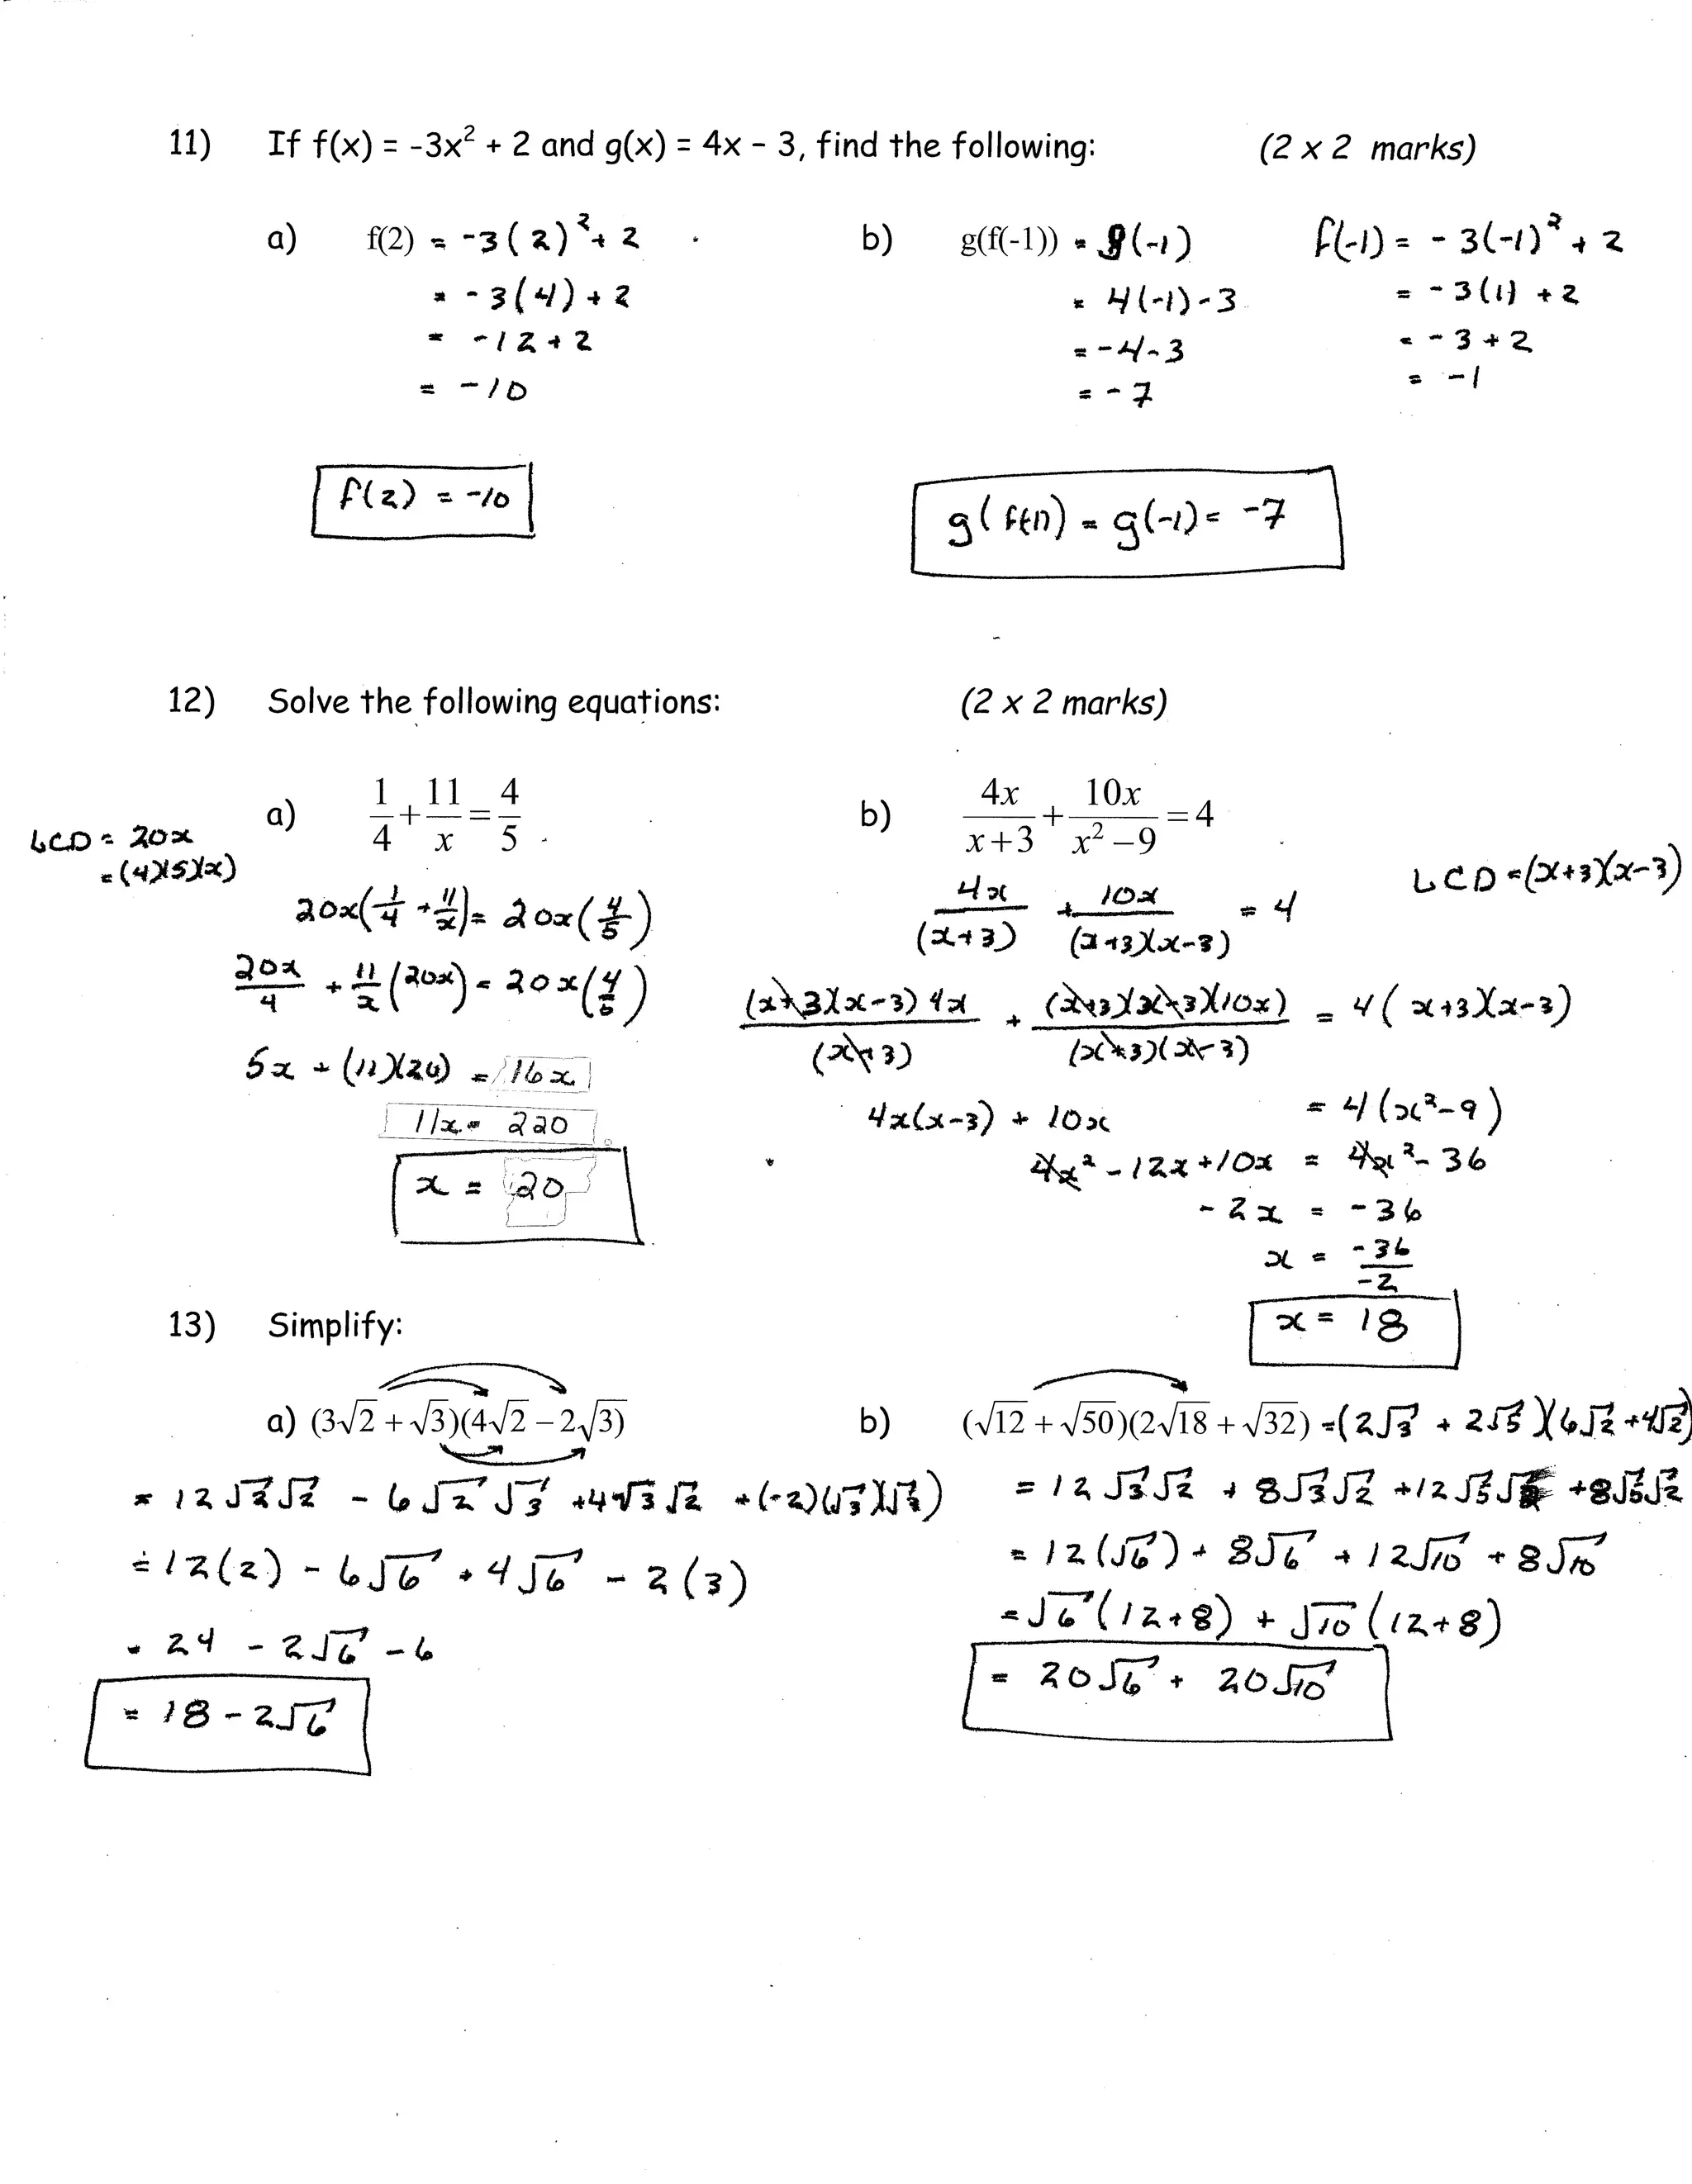 11) If f(x) = -3x² + 2 and g(x) = 4x - 3, find the following: (2 x 2 marks)
a) f(2) = -3(2)² + 2
= -3(4) + 2
= -12 + 2
= -10
f(2) = -10
b) g(f(-1)) = g(-1)
= 4(-1) - 3
= -4 - 3
= -7
f(-1) = -3(-1)² + 2
= -3(1) + 2
= -3 + 2
= -1
g(f(-1)) = g(-1) = -7
12) Solve the following equations: (2 x 2 marks)
a) 1/4 + 11/x = 4/5
LCD = 20x
= (4)(5)(x)
20x(1/4 + 11/x) = 20x(4/5)
20x/4 + 11/x(20x) = 20x(4/5)
5x + (11)(20) = 16x
11x = 220
x = 20
b) 4x/(x+3) + 10x/(x²-9) = 4
LCD = (x+3)(x-3)
4x/(x+3) + 10x/((x+3)(x-3)) = 4
(x+3)(x-3)4x/(x+3) + (x+3)(x-3)(10x)/((x+3)(x-3)) = 4(x+3)(x-3)
4x(x-3) + 10x = 4(x²-9)
4x² - 12x + 10x = 4x² - 36
-2x = -36
x = -36/-2
x = 18
13) Simplify:
a) (3√2 + √3)(4√2 - 2√3)
= 12√2√2 - 6√2√3 + 4√3√2 + (-2)(√3)(√3)
= 12(2) - 6√6 + 4√6 - 2(3)
= 24 - 2√6 - 6
= 18 - 2√6
b) (√12 + √50)(2√18 + √32) = (2√3 + 2√5)(6√2 + 4√2)
= 12√3√2 + 8√3√2 + 12√5 + 8√5√2
= 12(√6) + 8√6 + 12√10 + 8√10
= √6(12+8) + √10(12+8)
= 20√6 + 20√10